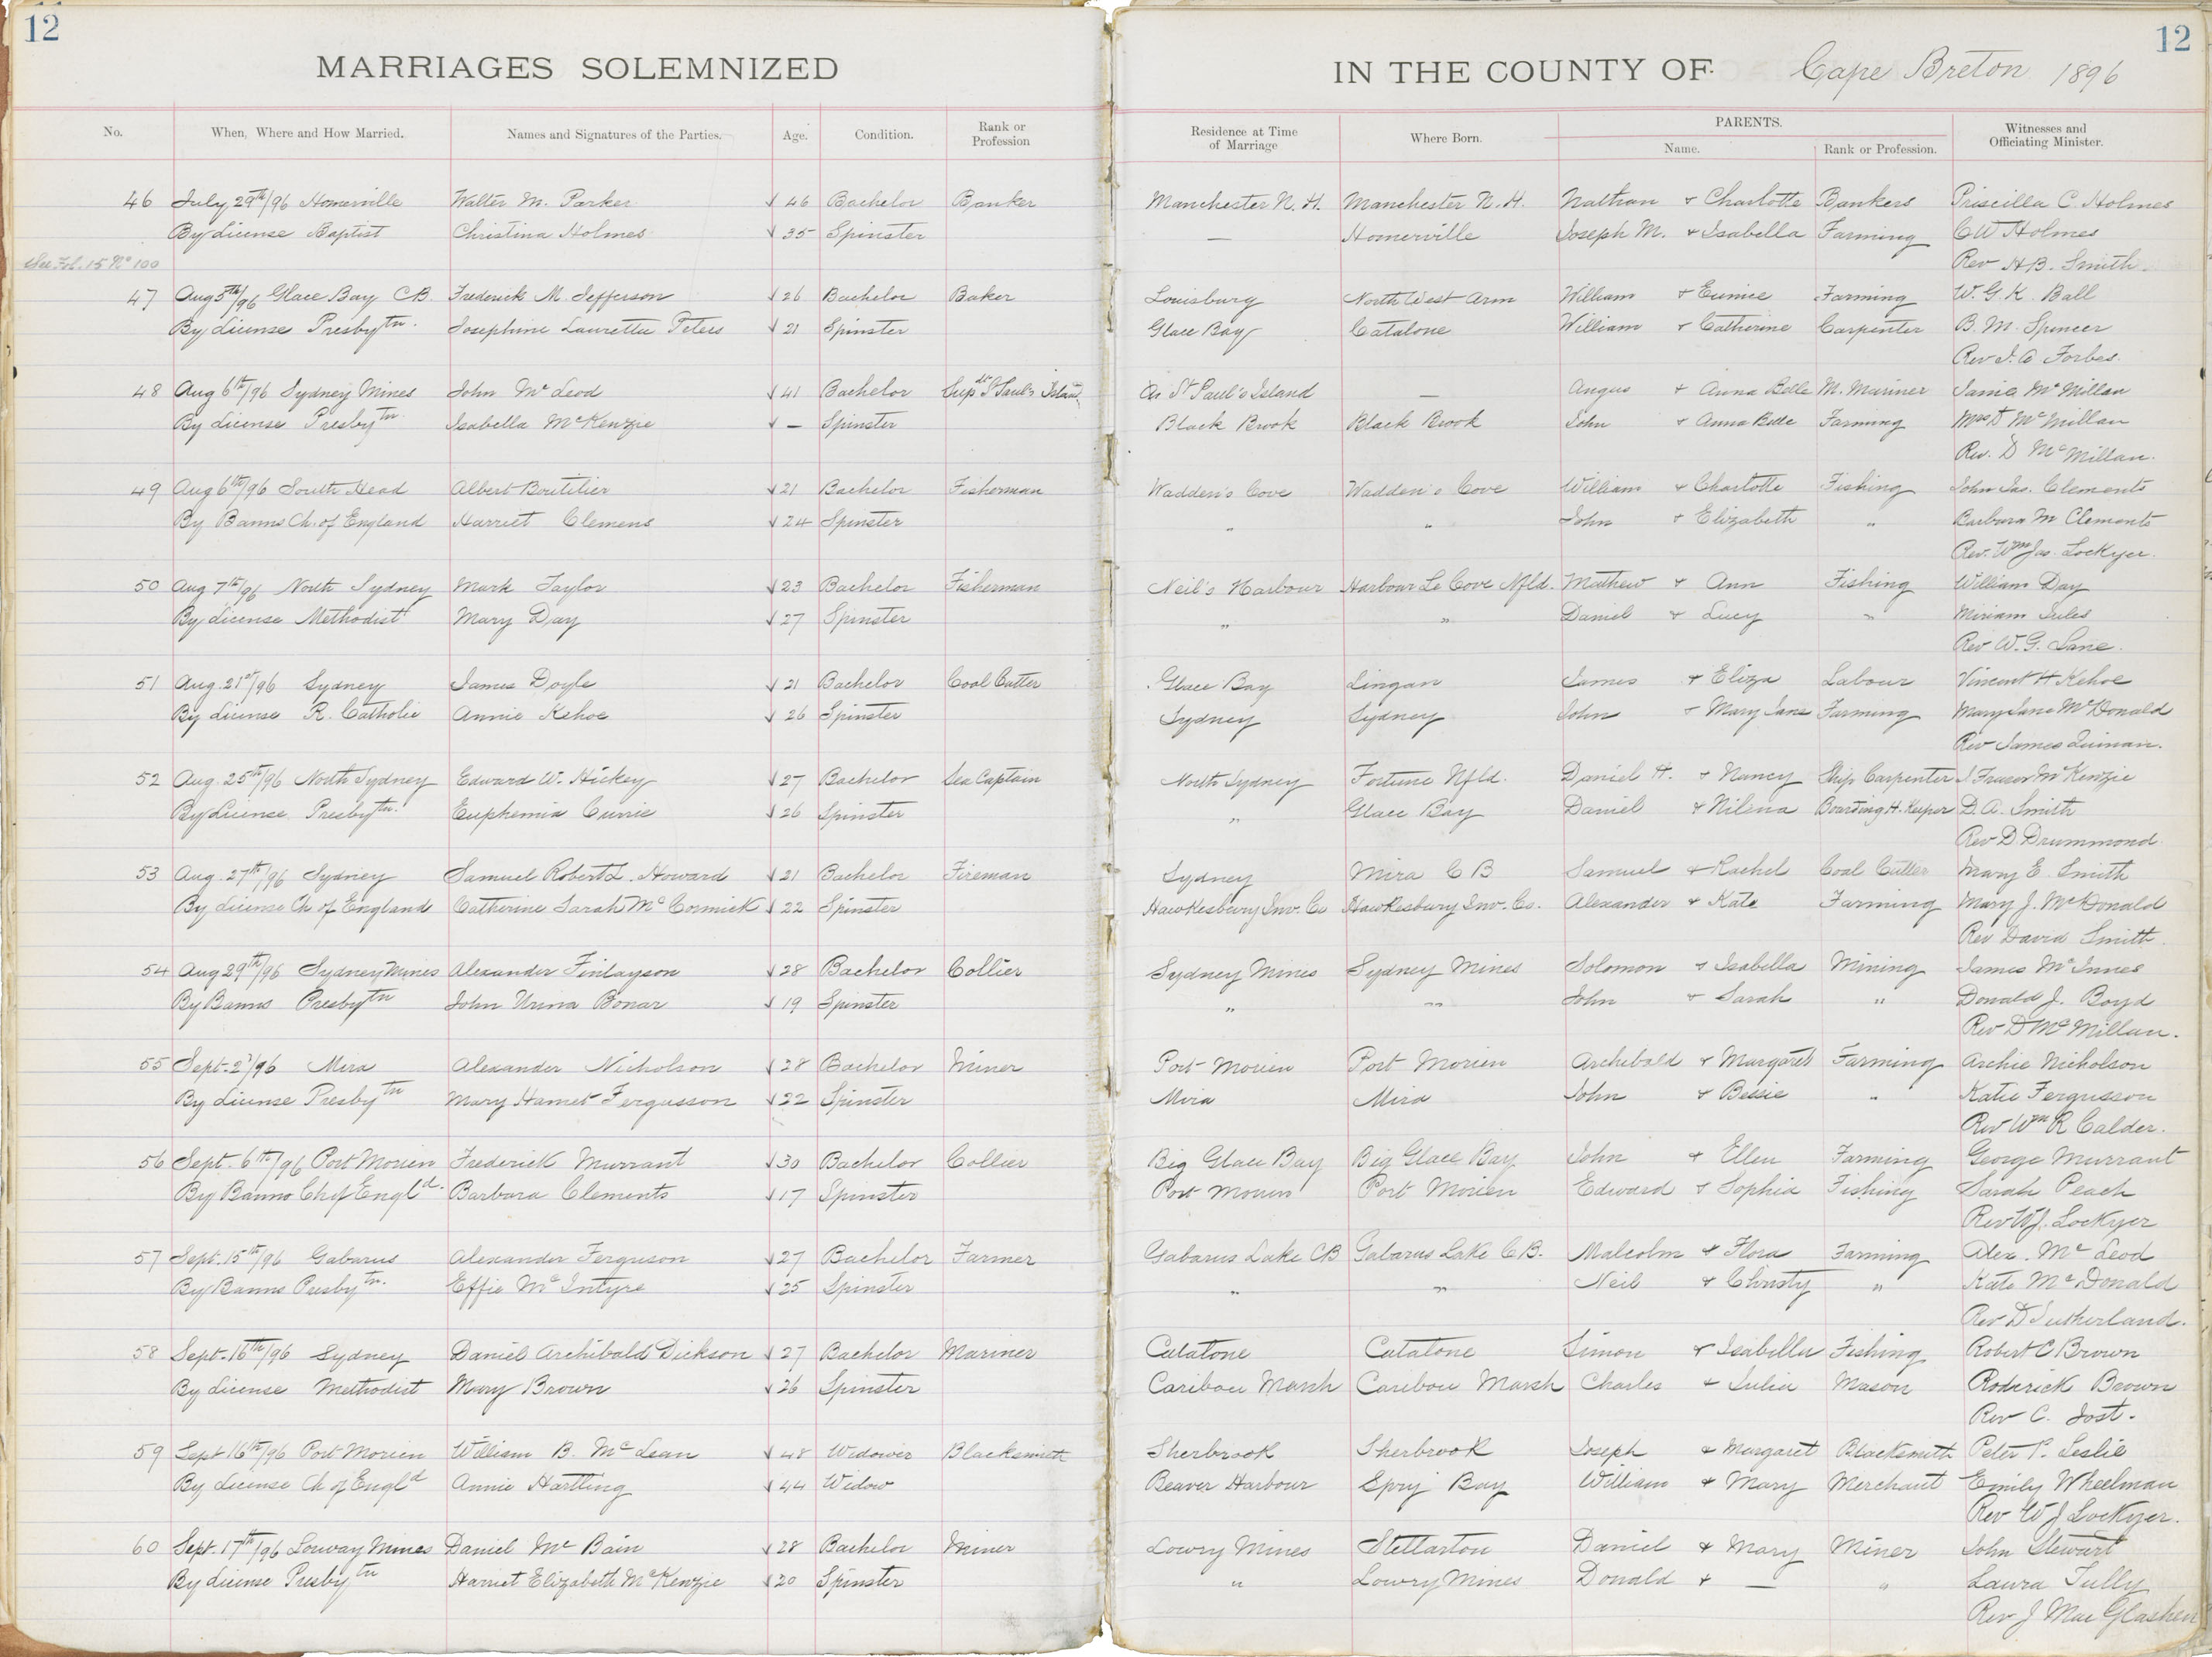 12
12
MARRIAGES SOLEMNIZED IN THE COUNTY OF Cape Breton 1896
No. When, Where and How Married. Names and Signatures of the Parties. Age. Condition. Rank or Profession Residence at Time of Marriage Where Born. PARENTS. Name. Rank or Profession. Witnesses and Officiating Minister.
46 July 29th/96 Homerville Walter M. Parker 46 Bachelor Banker Manchester N.H. Manchester N.H. Nathan & Charlotte Bankers Priscilla C. Holmes
By License Baptist Christina Holmes 35 Spinster — Homerville Joseph M. & Isabella Farming C W Holmes
See Fol. 15 No 100 Rev H.B. Smith.
47 Aug 5th/96 Glace Bay C.B. Frederick M. Jefferson 26 Bachelor Baker Louisburg North West Arm William & Eunice Farming W. G. K. Ball
By License Presbytn. Josephine Lauretta Peters 21 Spinster Glace Bay Catalone William & Catherine Carpenter B. M. Spencer
Rev J. A Forbes.
48 Aug 6th/96 Sydney Mines John Mc Leod 41 Bachelor Supdt St Paul's Island St Paul's Island — Angus & Anna Belle M. Mariner Jamie McMillan
By License Presbytn Isabella McKenzie — Spinster Black Brook Black Brook John & Anna Belle Farming Mrs D McMillan
Rev. D McMillan.
49 Aug 6th/96 South Head Albert Boutilier 21 Bachelor Fisherman Wadden's Cove Wadden's Cove William & Charlotte Fishing John Jas. Clements
By Banns Ch. of England Harriet Clemens 24 Spinster " " John & Elizabeth " Barbara M Clements
Rev. Wm Jas. Lockyer.
50 Aug 7th/96 North Sydney Mark Taylor 23 Bachelor Fisherman Neil's Harbour Harbour Le Cove Nfld. Mathew & Ann Fishing William Day
By License Methodist Mary Day 27 Spinster " " Daniel & Lucy " Miriam Sules
Rev W. G. Lane.
51 Aug. 21st/96 Sydney James Doyle 21 Bachelor Coal Cutter Glace Bay Lingan James & Eliza Labour Vincent H Kehoe
By License R. Catholic Annie Kehoe 26 Spinster Sydney Sydney John & Mary Jane Farming Mary Jane McDonald
Rev James Quinan.
52 Aug. 25th/96 North Sydney Edward W. Hickey 27 Bachelor Sea Captain North Sydney Fortune Nfld. Daniel H. & Nancy Ship Carpenter J. Fraser McKenzie
By License Presbytn. Euphemia Currie 26 Spinster " Glace Bay Daniel & Nilena Boarding H. Keeper D. A. Smith
Rev D Drummond
53 Aug. 27th/96 Sydney Samuel Robert L. Howard 21 Bachelor Fireman Sydney Mira C B Samuel & Rachel Coal Cutter Mary E. Smith
By License Ch of England Catherine Sarah McCormick 22 Spinster Hawkesbury Inv. Co Hawkesbury Inv. Co. Alexander & Kate Farming Mary J. McDonald
Rev David Smith.
54 Aug 29th/96 Sydney Mines Alexander Finlayson 28 Bachelor Collier Sydney Mines Sydney Mines Solomon & Isabella Mining James McInnes
By Banns Presbytn John Urina Bonar 19 Spinster " " John & Sarah " Donald J. Boyd
Rev D McMillan.
55 Sept. 2d/96 Mira Alexander Nicholson 28 Bachelor Miner Port Morien Port Morien Archibald & Margaret Farming Archie Nicholson
By License Presbytn Mary Harriet Fergusson 22 Spinster Mira Mira John & Bessie " Katie Fergusson
Rev Wm R Calder.
56 Sept. 6th/96 Port Morien Frederick Murrant 30 Bachelor Collier Big Glace Bay Big Glace Bay John & Ellen Farming George Murrant
By Banns Ch of Engld. Barbara Clements 17 Spinster Port Morien Port Morien Edward & Sophia Fishing Sarah Peach
Rev W J. Lockyer
57 Sept. 15th/96 Gabarus Alexander Ferguson 27 Bachelor Farmer Gabarus Lake CB Gabarus Lake C.B. Malcolm & Flora Farming Alex. Mc Leod
By Banns Presbytn. Effie McIntyre 25 Spinster " " Neil & Christy " Kate McDonald
Rev D Sutherland.
58 Sept. 16th/96 Sydney Daniel Archibald Dickson 27 Bachelor Mariner Catalone Catalone Simon & Isabella Fishing Robert C Brown
By License Methodist Mary Brown 26 Spinster Caribou Marsh Caribou Marsh Charles & Julia Mason Roderick Brown
Rev C. Jost.
59 Sept 16th/96 Port Morien William B. McLean 48 Widower Blacksmith Sherbrook Sherbrook Joseph & Margaret Blacksmith Peter P. Leslie
By License Ch of Engld Annie Hartling 44 Widow Beaver Harbour Spry Bay William & Mary Merchant Emily Wheelman
Rev W J Lockyer.
60 Sept. 17th/96 Lorway Mines Daniel Mc Bain 28 Bachelor Miner Lowry Mines Stellarton Daniel & Mary Miner John Stewart
By License Presbytn Harriet Elizabeth McKenzie 20 Spinster " Lowry Mines Donald & — " Laura Tully
Rev J Mac Glashen